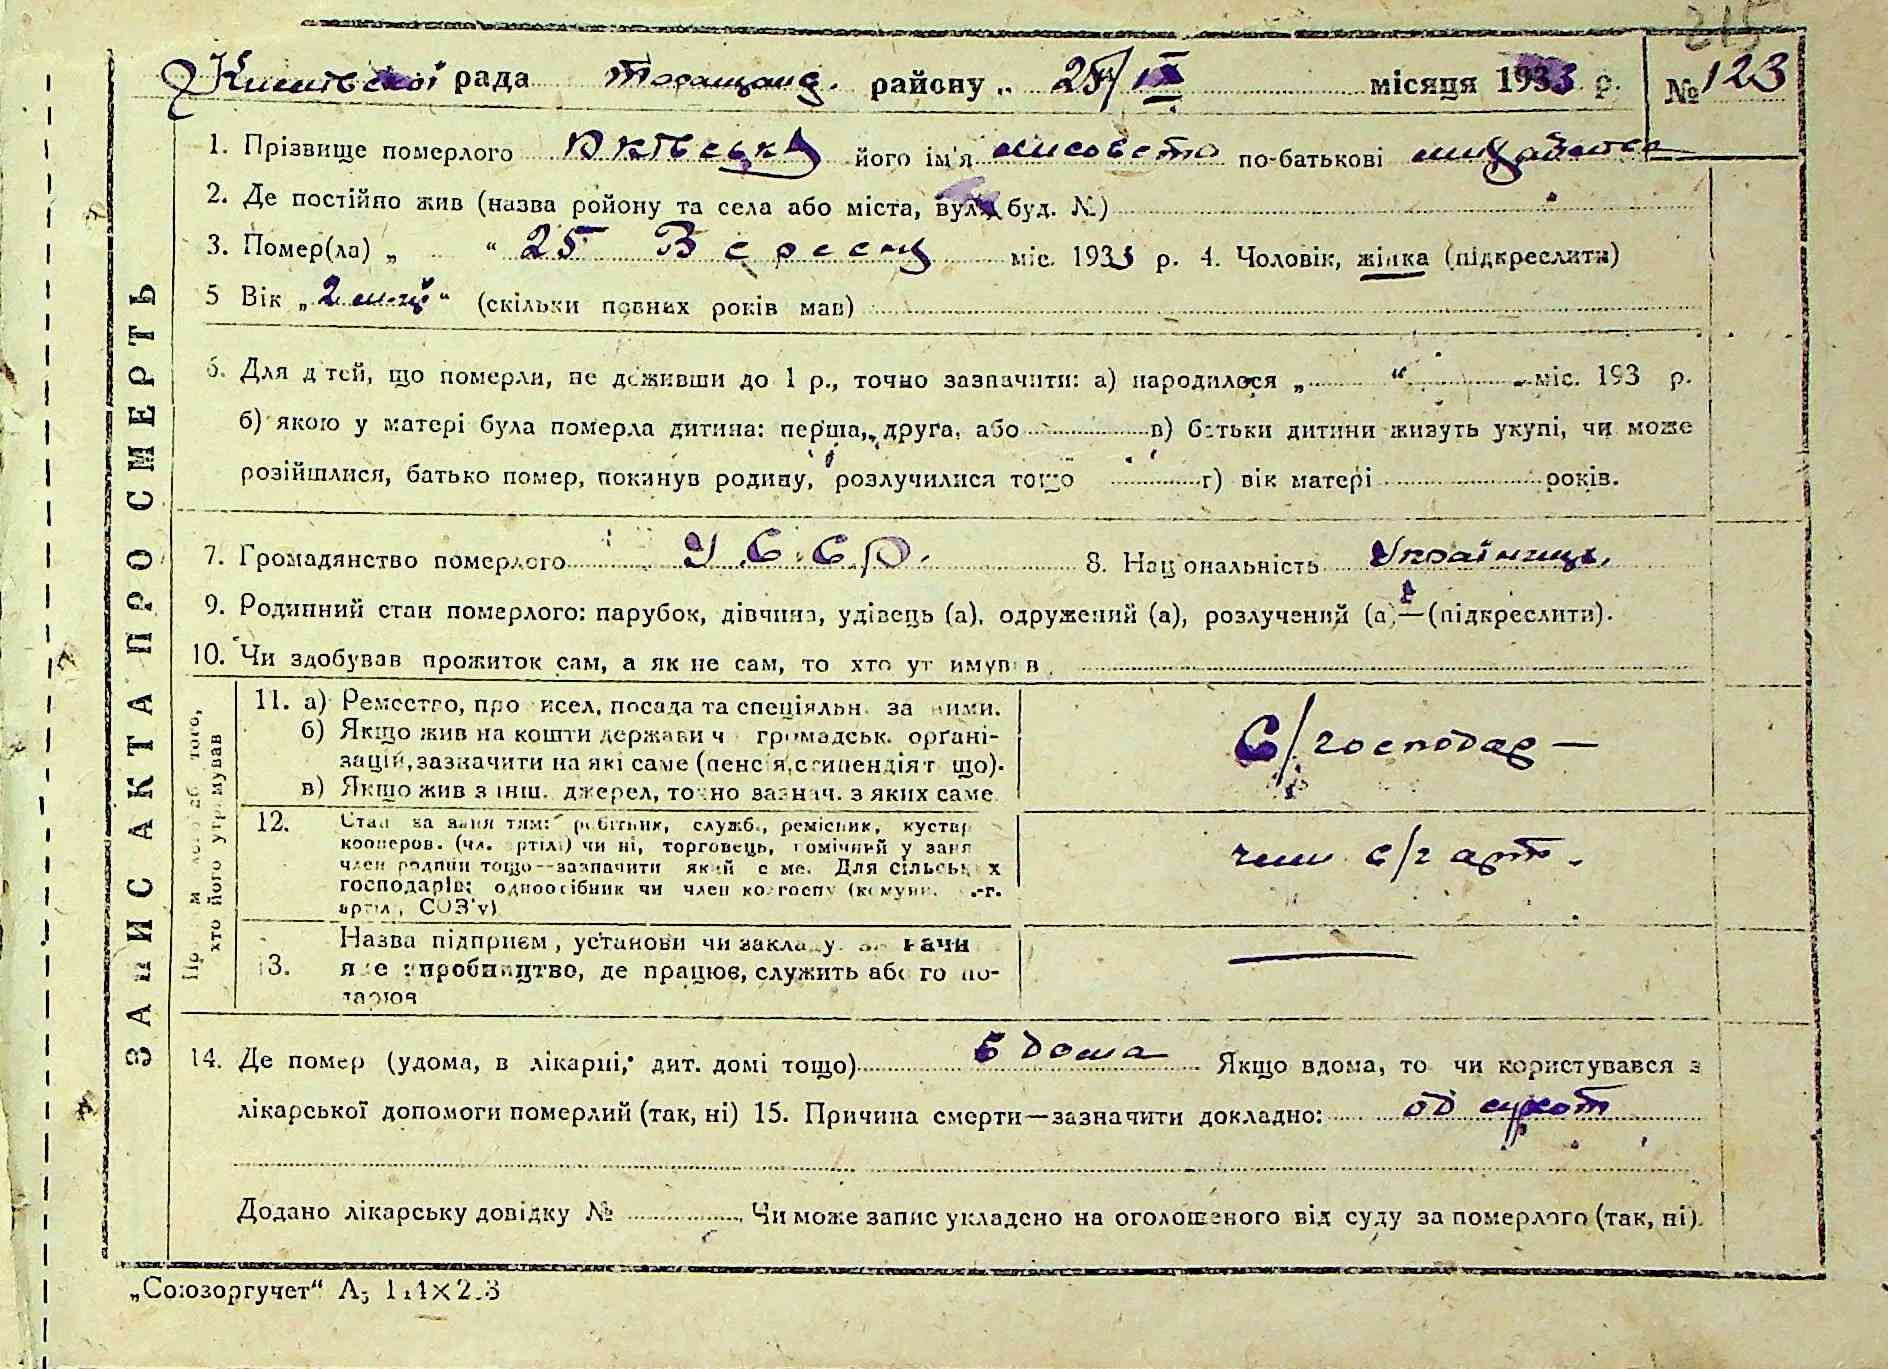 215
рада районну „ 25/IX місяця 1933 р. № 123
1. Прізвище померлого його ім'я лисовета по-батькові
2. Де постійно жив (назва ройону та села або міста, вул. буд. №)
3. Помер(ла) „ “ 25 Вересня міс. 1933 р. 4. Чоловік, жінка (підкреслити)
5 Вік „ 2 “ (скільки повних років мав)
6. Для дітей, що померли, не доживши до 1 р., точно зазначити: а) народилося „ “ міс. 193 р.
б) якою у матері була померла дитина: перша, друга, або в) батьки дитини живуть укупі, чи може
розійшлися, батько помер, покинув родину, розлучилися тощо г) вік матері років.
7. Громадянство померлого У.С.С.Р. 8. Національність Українець
9. Родинний стан померлого: парубок, дівчина, удівець (а), одружений (а), розлучений (а)—(підкреслити).
10. Чи здобував прожиток сам, а як не сам, то хто утримував
ЗАПИС АКТА ПРО СМЕРТЬ
того,
хто його утримував
11. а) Ремество, промисел, посада та спеціяльн. за ними.
б) Якщо жив на кошти держави чи громадськ. органі-
зацій, зазначити на які саме (пенсія, стипендія т що).
в) Якщо жив з інш. джерел, точно зазнач. з яких саме
С/господар —
12. Стан за заняттям: робітник, служб., ремісник, кустар
кооперов. (чл. артілі) чи ні, торговець, помічний у занят
член родини тощо—зазначити який саме. Для сільських
господарів: одноосібник чи член колгоспу (комуни, с.-г.
артілі, СОЗ'у)
член с/г арт.
13. Назва підприєм, установи чи закладу
яке виробництво, де працює, служить або
14. Де помер (удома, в лікарні, дит. домі тощо) в дома Якщо вдома, то чи користувався з
лікарської допомоги померлий (так, ні) 15. Причина смерти—зазначити докладно: од сухот
Додано лікарську довідку № Чи може запис укладено на оголошеного від суду за померлого (так, ні).
„Союзоргучет“